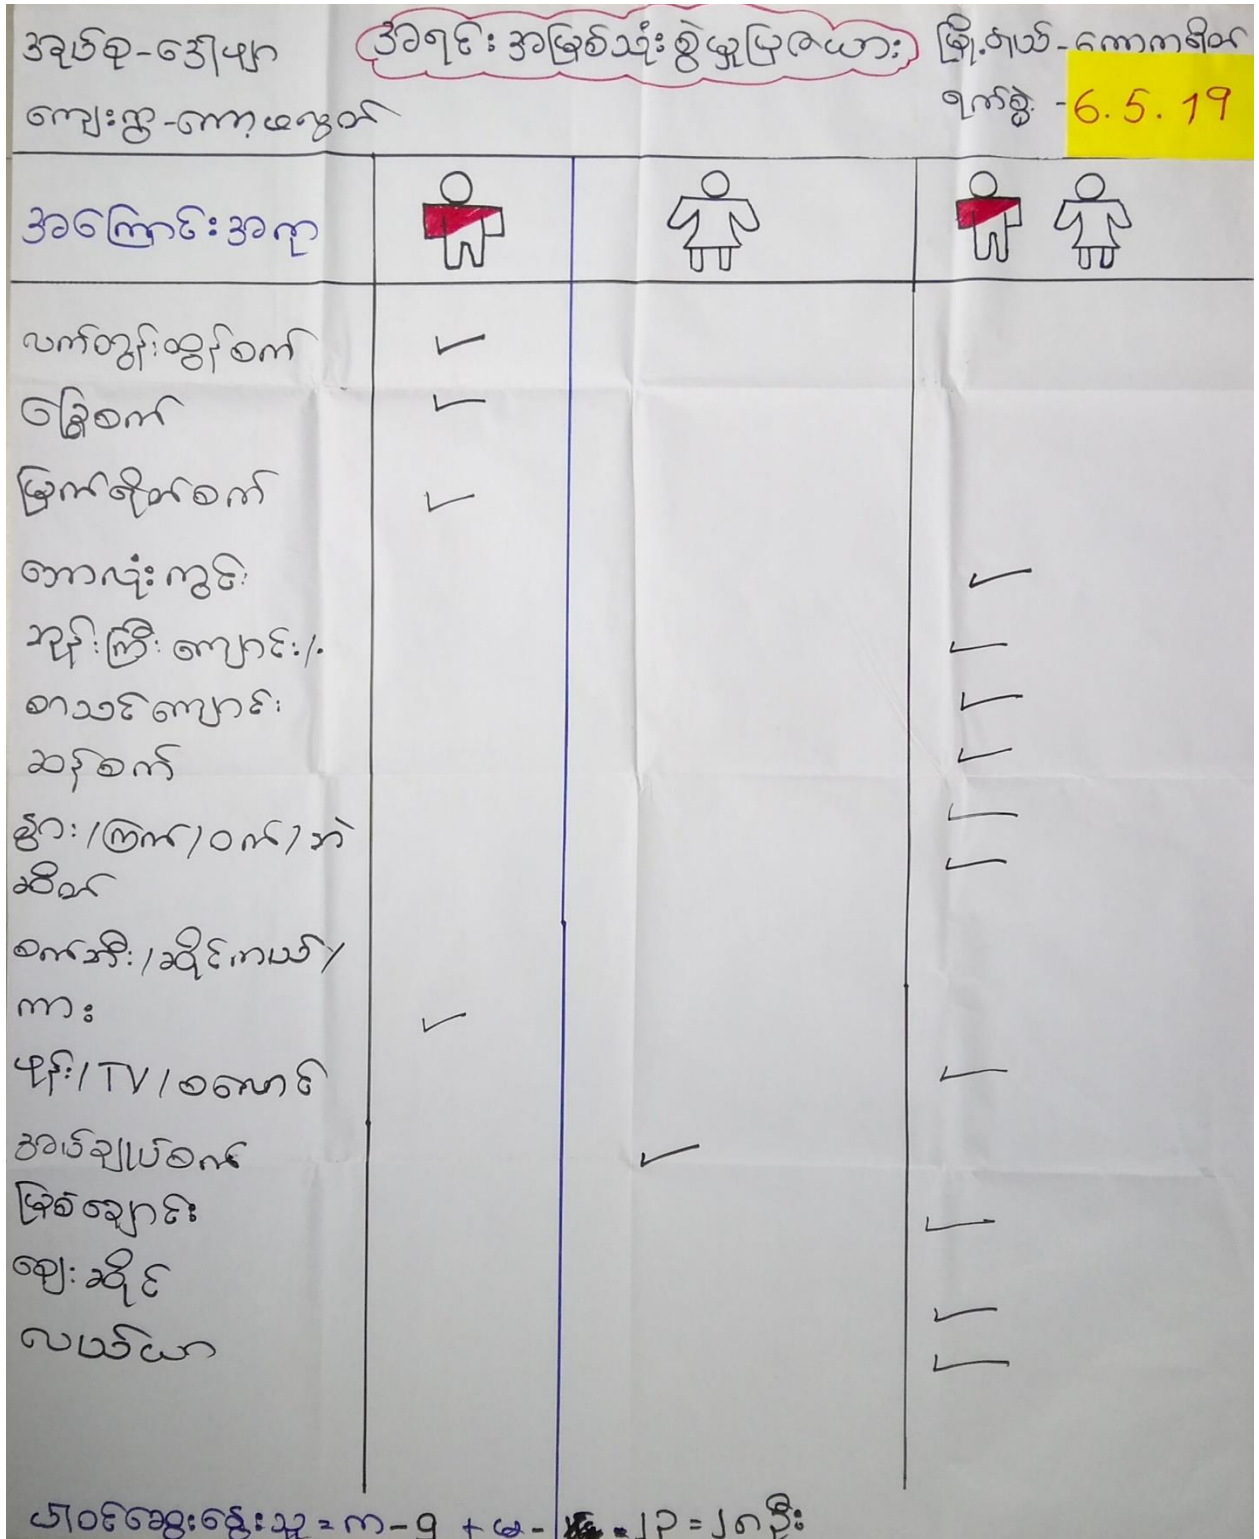 အုပ်စု-ဒေါဖျာ
အရင်းအမြစ်သုံးစွဲမှုပြဇယား
မြို့နယ်-ကော့ကရိတ်
ကျေးရွာ-ကော့ဖလွတ်
ရက်စွဲ - 6.5.19
အကြောင်းအရာ
လက်တွန်းထွန်စက်
ခြွေစက်
မြက်ရိတ်စက်
ဘောလုံးကွင်း
ဘုန်းကြီးကျောင်း/.
စာသင်ကျောင်း
ဆန်စက်
နွား/ကြက်/ဝက်/ဘဲ
ဆိတ်
စက်ဘီး/ဆိုင်ကယ်/
ကား
ဖုန်း/TV/စလောင်း
အပ်ချုပ်စက်
မြစ်ချောင်း
ဈေးဆိုင်
လယ်ယာ
ပါဝင်ဆွေးနွေးသူ = ကာ-၅ + မ- ၂၃ = ၂၈ ဦး